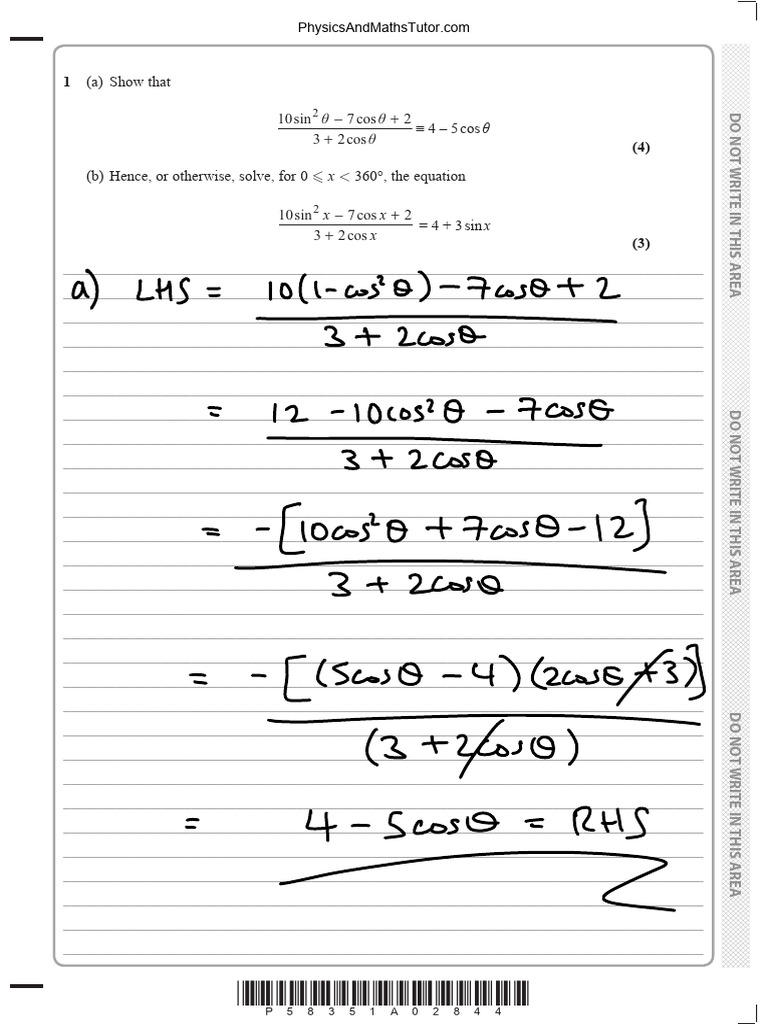 PhysicsAndMathsTutor.com
1 (a) Show that
10sin² θ − 7cos θ + 2
3 + 2cos θ
≡ 4 − 5cos θ
(4)
(b) Hence, or otherwise, solve, for 0 ⩽ x < 360°, the equation
10sin² x − 7cos x + 2
3 + 2cos x
= 4 + 3sin x
(3)
a) LHS = 10(1-cos²θ) - 7cosθ + 2
3 + 2cosθ
= 12 - 10cos²θ - 7cosθ
3 + 2cosθ
= -[10cos²θ + 7cosθ - 12]
3 + 2cosθ
= -[(5cosθ - 4)(2cosθ + 3)]
(3 + 2cosθ)
= 4 - 5cosθ = RHS
DO NOT WRITE IN THIS AREA
DO NOT WRITE IN THIS AREA
DO NOT WRITE IN THIS AREA
P58351A02844